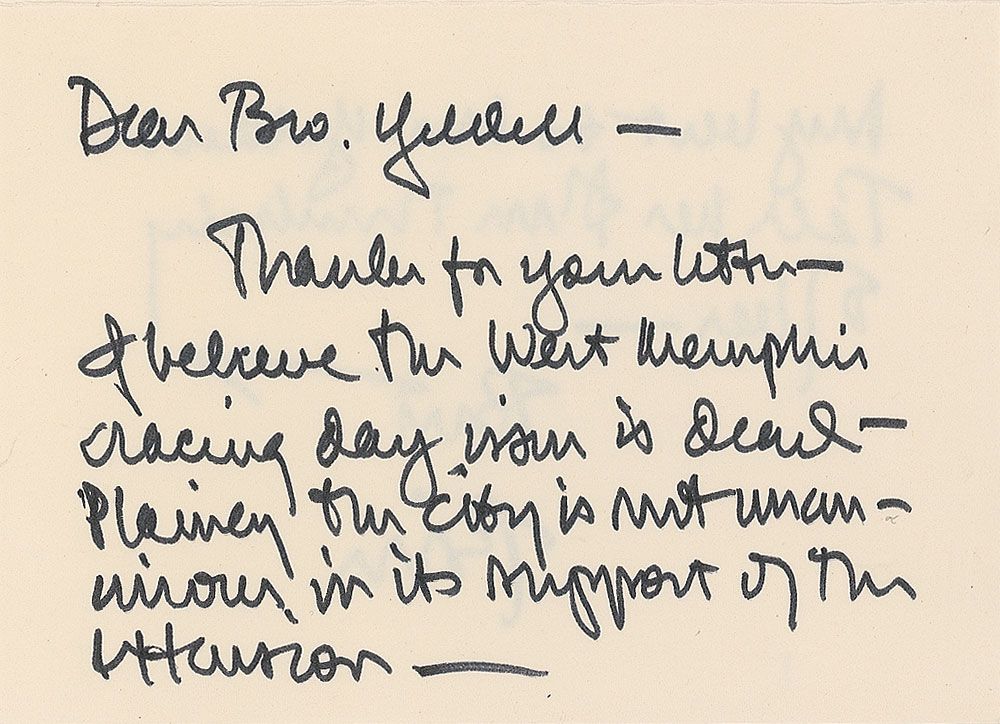 Dear Bro. Yeldell —
Thanks for your letter —
I believe the West Memphis
racing day issue is dead —
Plainly the city is not unan-
imous in its support of the
extension —